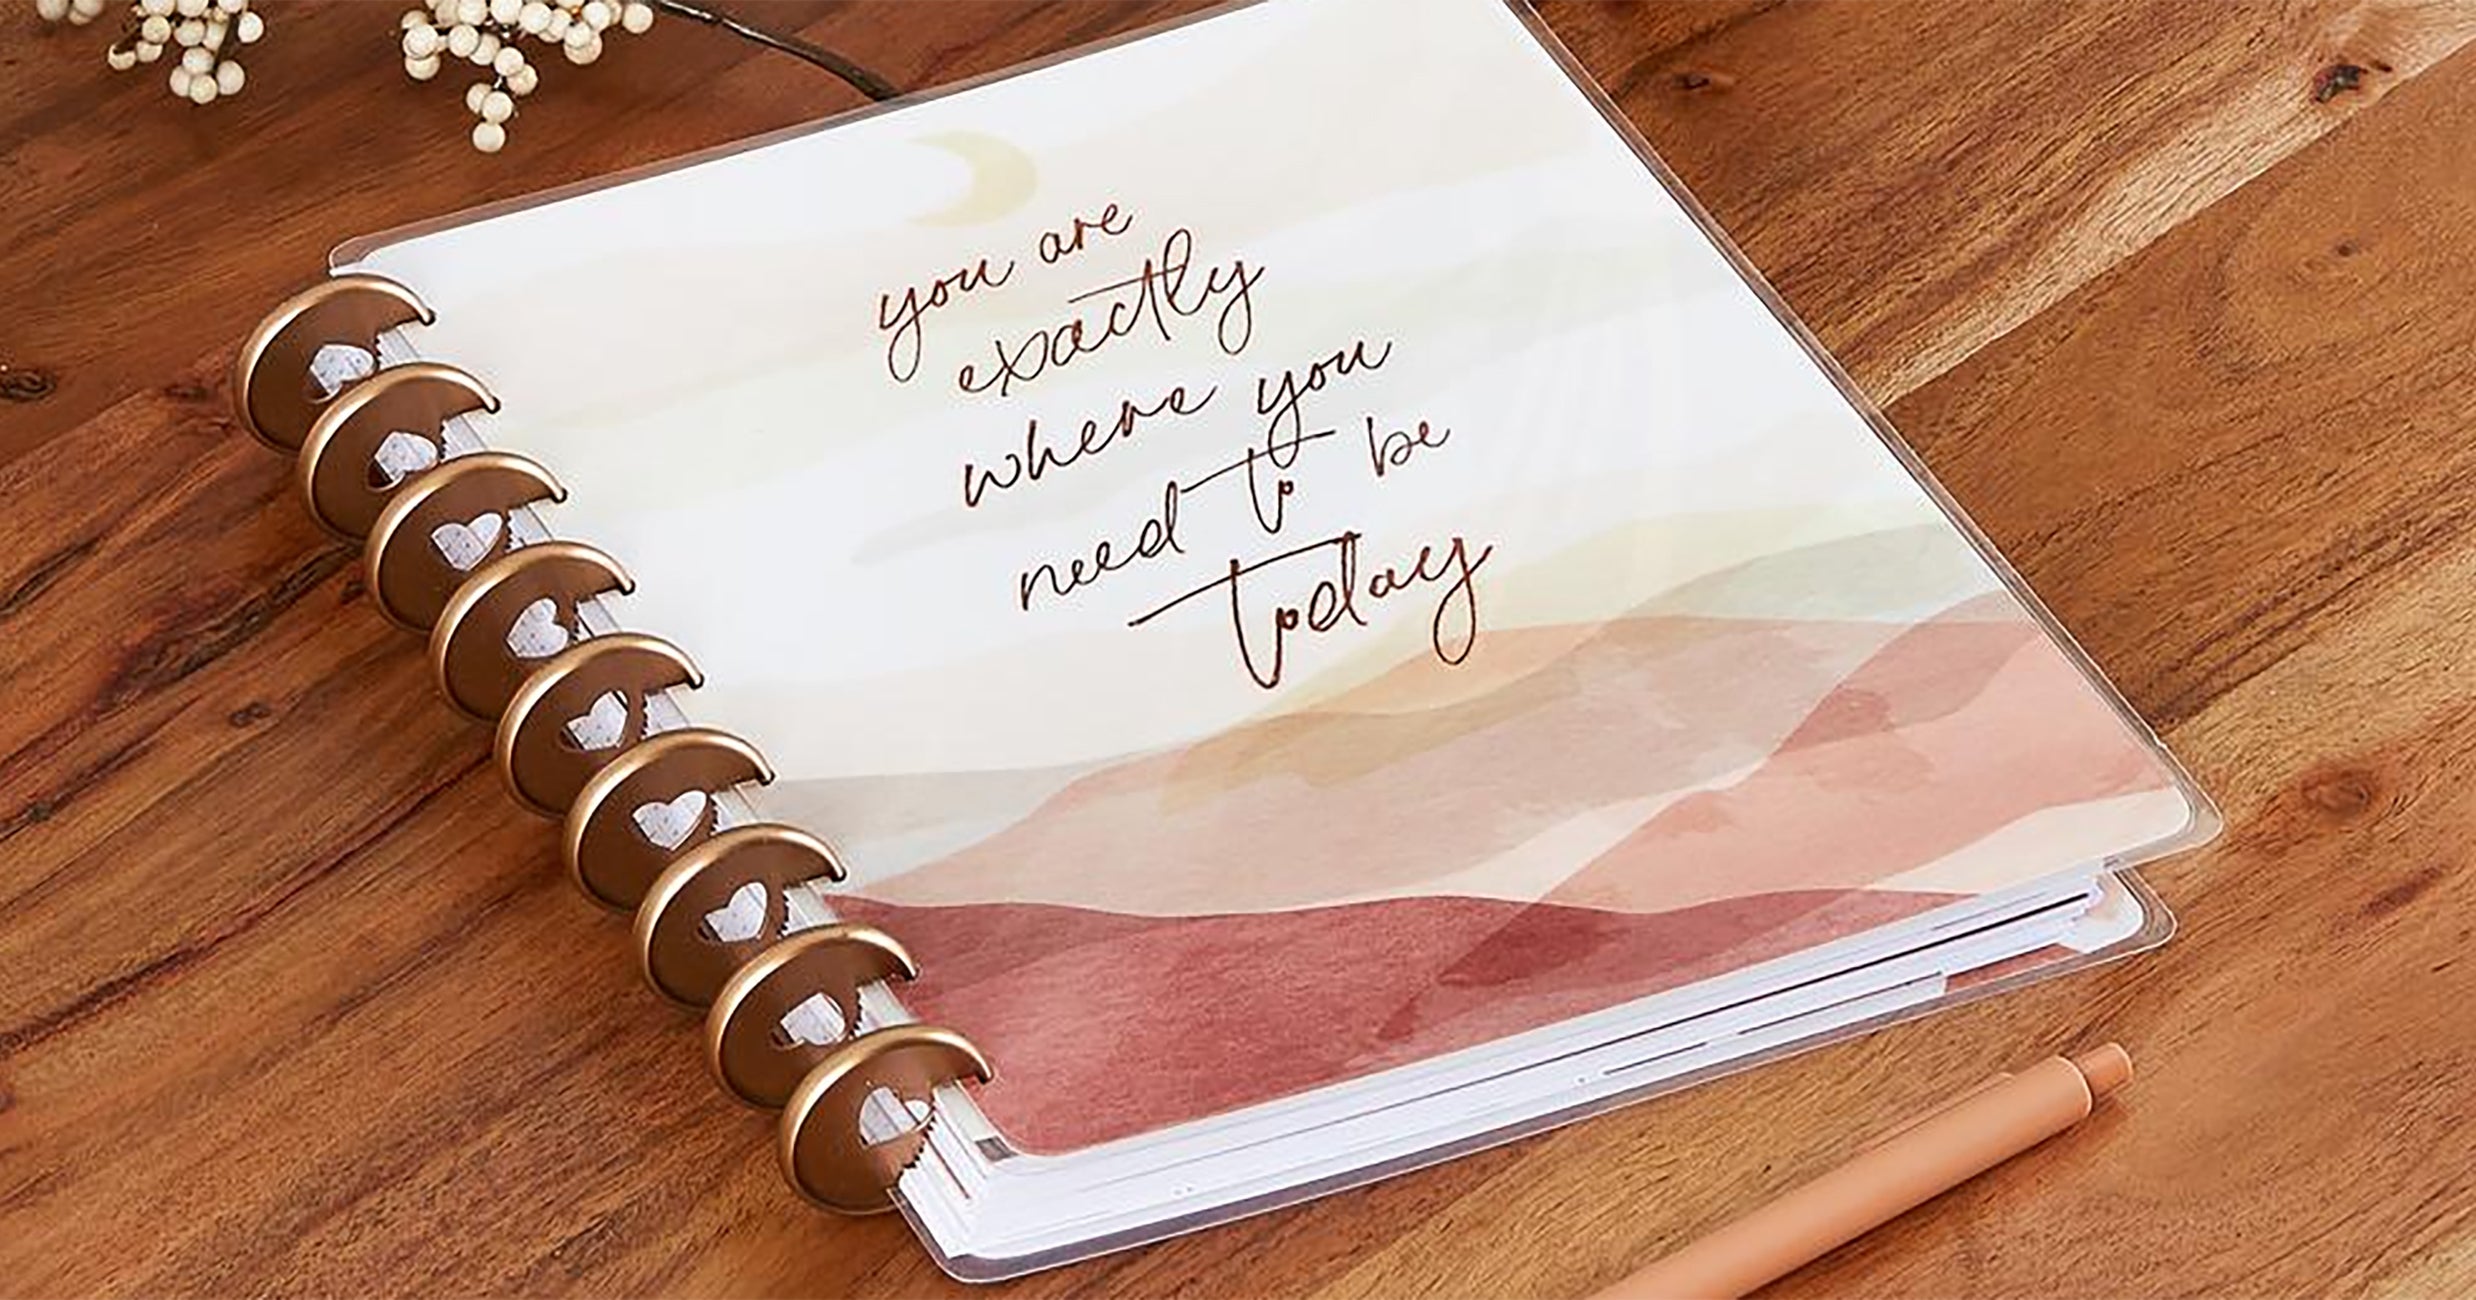 you are
exactly
where you
need to be
today